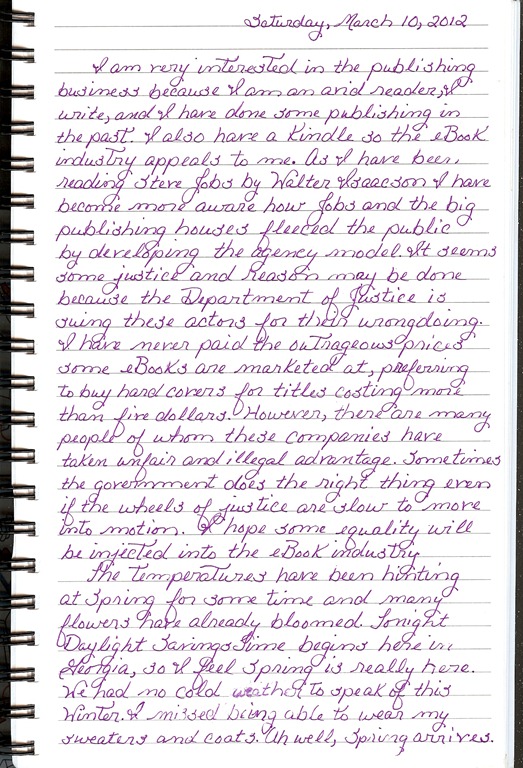 Saturday, March 10, 2012
I am very interested in the publishing
business because I am an avid reader, I
write, and I have done some publishing in
the past. I also have a Kindle so the eBook
industry appeals to me. As I have been
reading Steve Jobs by Walter Isaacson I have
become more aware how Jobs and the big
publishing houses fleeced the public
by developing the agency model. It seems
some justice and reason may be done
because the Department of Justice is
suing these actors for their wrongdoing.
I have never paid the outrageous prices
some eBooks are marketed at, preferring
to buy hard covers for titles costing more
than five dollars. However, there are many
people of whom these companies have
taken unfair and illegal advantage. Sometimes
the government does the right thing even
if the wheels of justice are slow to move
into motion. I hope some equality will
be injected into the eBook industry
The temperatures have been hinting
at Spring for some time and many
flowers have already bloomed. Tonight
Daylight Savings Time begins here in
Georgia, so I feel Spring is really here.
We had no cold weather to speak of this
Winter. I missed being able to wear my
sweaters and coats. Ah well, Spring arrives.